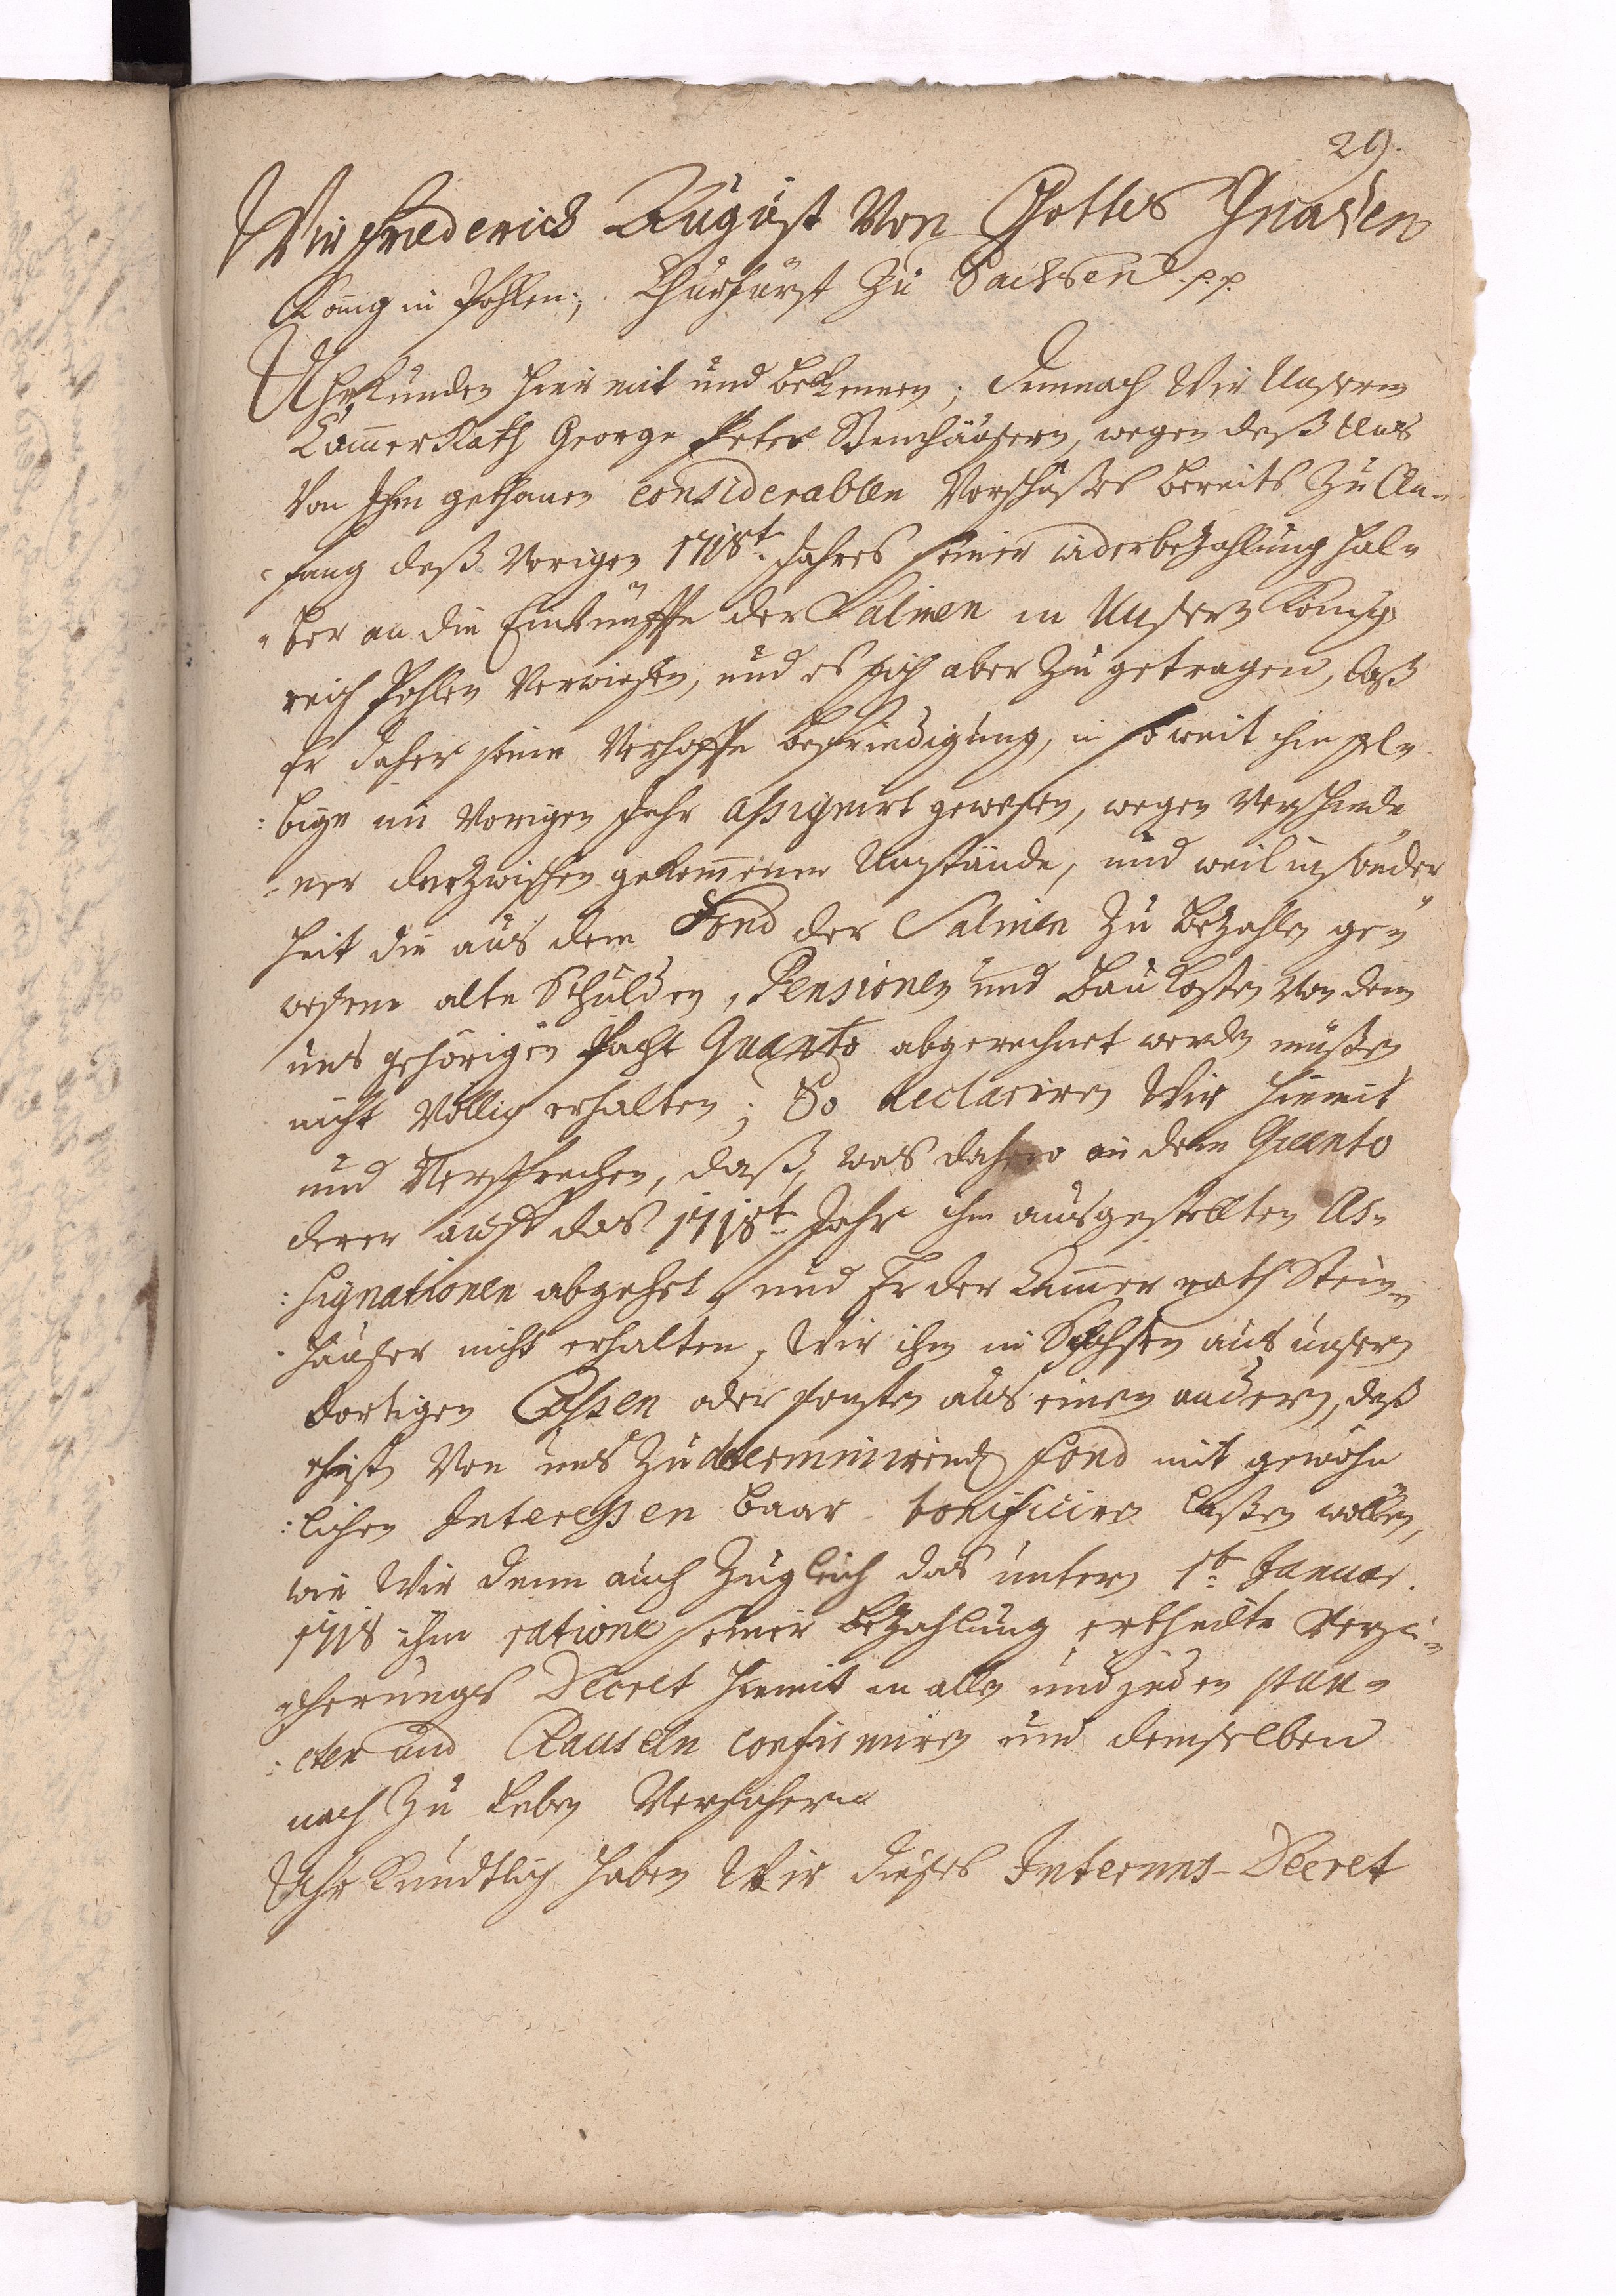 29.
Wir Friederich August Von Gottes Gnaden
König in Pohlen, Churfürst Zu Sachsen p.p.
Uhrkunden hier mit und bekennen; Demnach Wir Unserm
Cammer Rath George Peter Steinhäusern, wegen deß Uns
von Ihm gethanen considerablen Vorschußes bereits Zu An-
fang deß Vorigen 1718t. Jahres seiner wiederbezahlung hal-
ber an die Einkünffte der Salinen in Unserm König
reich Pohlen verwiesen, und es sich aber Zu getragen, daß
Er daher seine verhoffte befriedigung, in so weit ihm sel-
bige im Vorigen Jahr assigniret gewesen, wegen verschiede
ner darzwischen gekommenen Umstände, und weil insonder
heit die aus dem Fond der Salinen Zu bezahlen ge-
wesene alte Schulden, Pensionen und Bau Kosten von dem
uns gehörigen Pacht Quanto abgerechnet werden müßen
nicht völlig erhalten; So declariren Wir hiemit
und Versprechen, daß, was dahero an dem Quanto
derer auff das 1718t. Jahr ihm ausgestellten As-
signationen abgehet, und Er der Cammer rath Stein-
häuser nicht erhalten, Wir ihm in Sachsen aus unsern
dortigen Cassen oder sonsten aus einem andern, deß
ehesten von uns Zu determinirenden Fond mit gewöhn
lichen Interessen baar bonificiren laßen wollen,
wie Wir denn auch Zugleich das unterm 1t. Januar.
1718 ihm ratione seiner bezahlung ertheilte Versi-
cherungs Decret hiemit in allen und jeden Pun-
cten und Clauseln confirmiren und demselben
nach Zu leben Versichern
Uhrkundtlich haben Wir dieses Interims-Decret